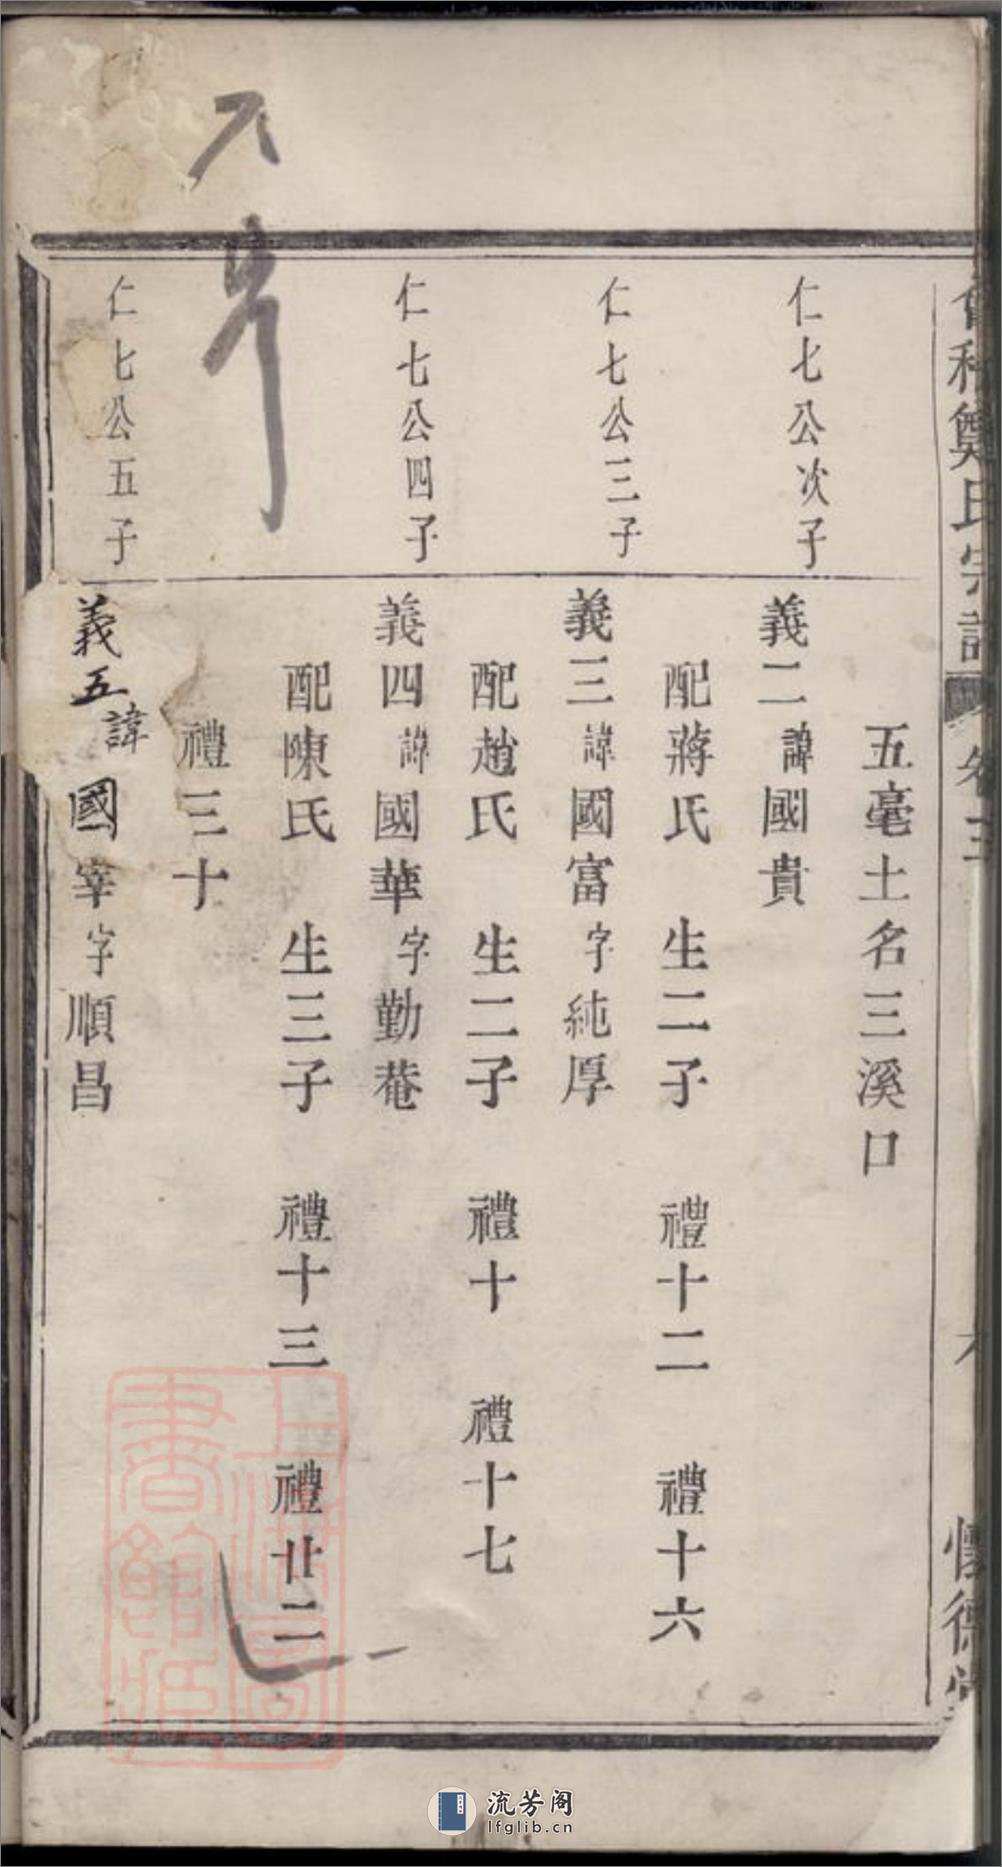 會稽鄭氏宗譜 卷三 懷德堂
五毫土名三溪口
仁七公次子
義二諱國貴
配蔣氏 生二子 禮十二 禮十六
仁七公三子
義三諱國富字純厚
配趙氏 生二子 禮十 禮十七
仁七公四子
義四諱國華字勤菴
配陳氏 生三子 禮十三 禮廿二
禮三十
仁七公五子
義五諱國宰字順昌
上海圖書館藏
流芳阁
lfglib.cn